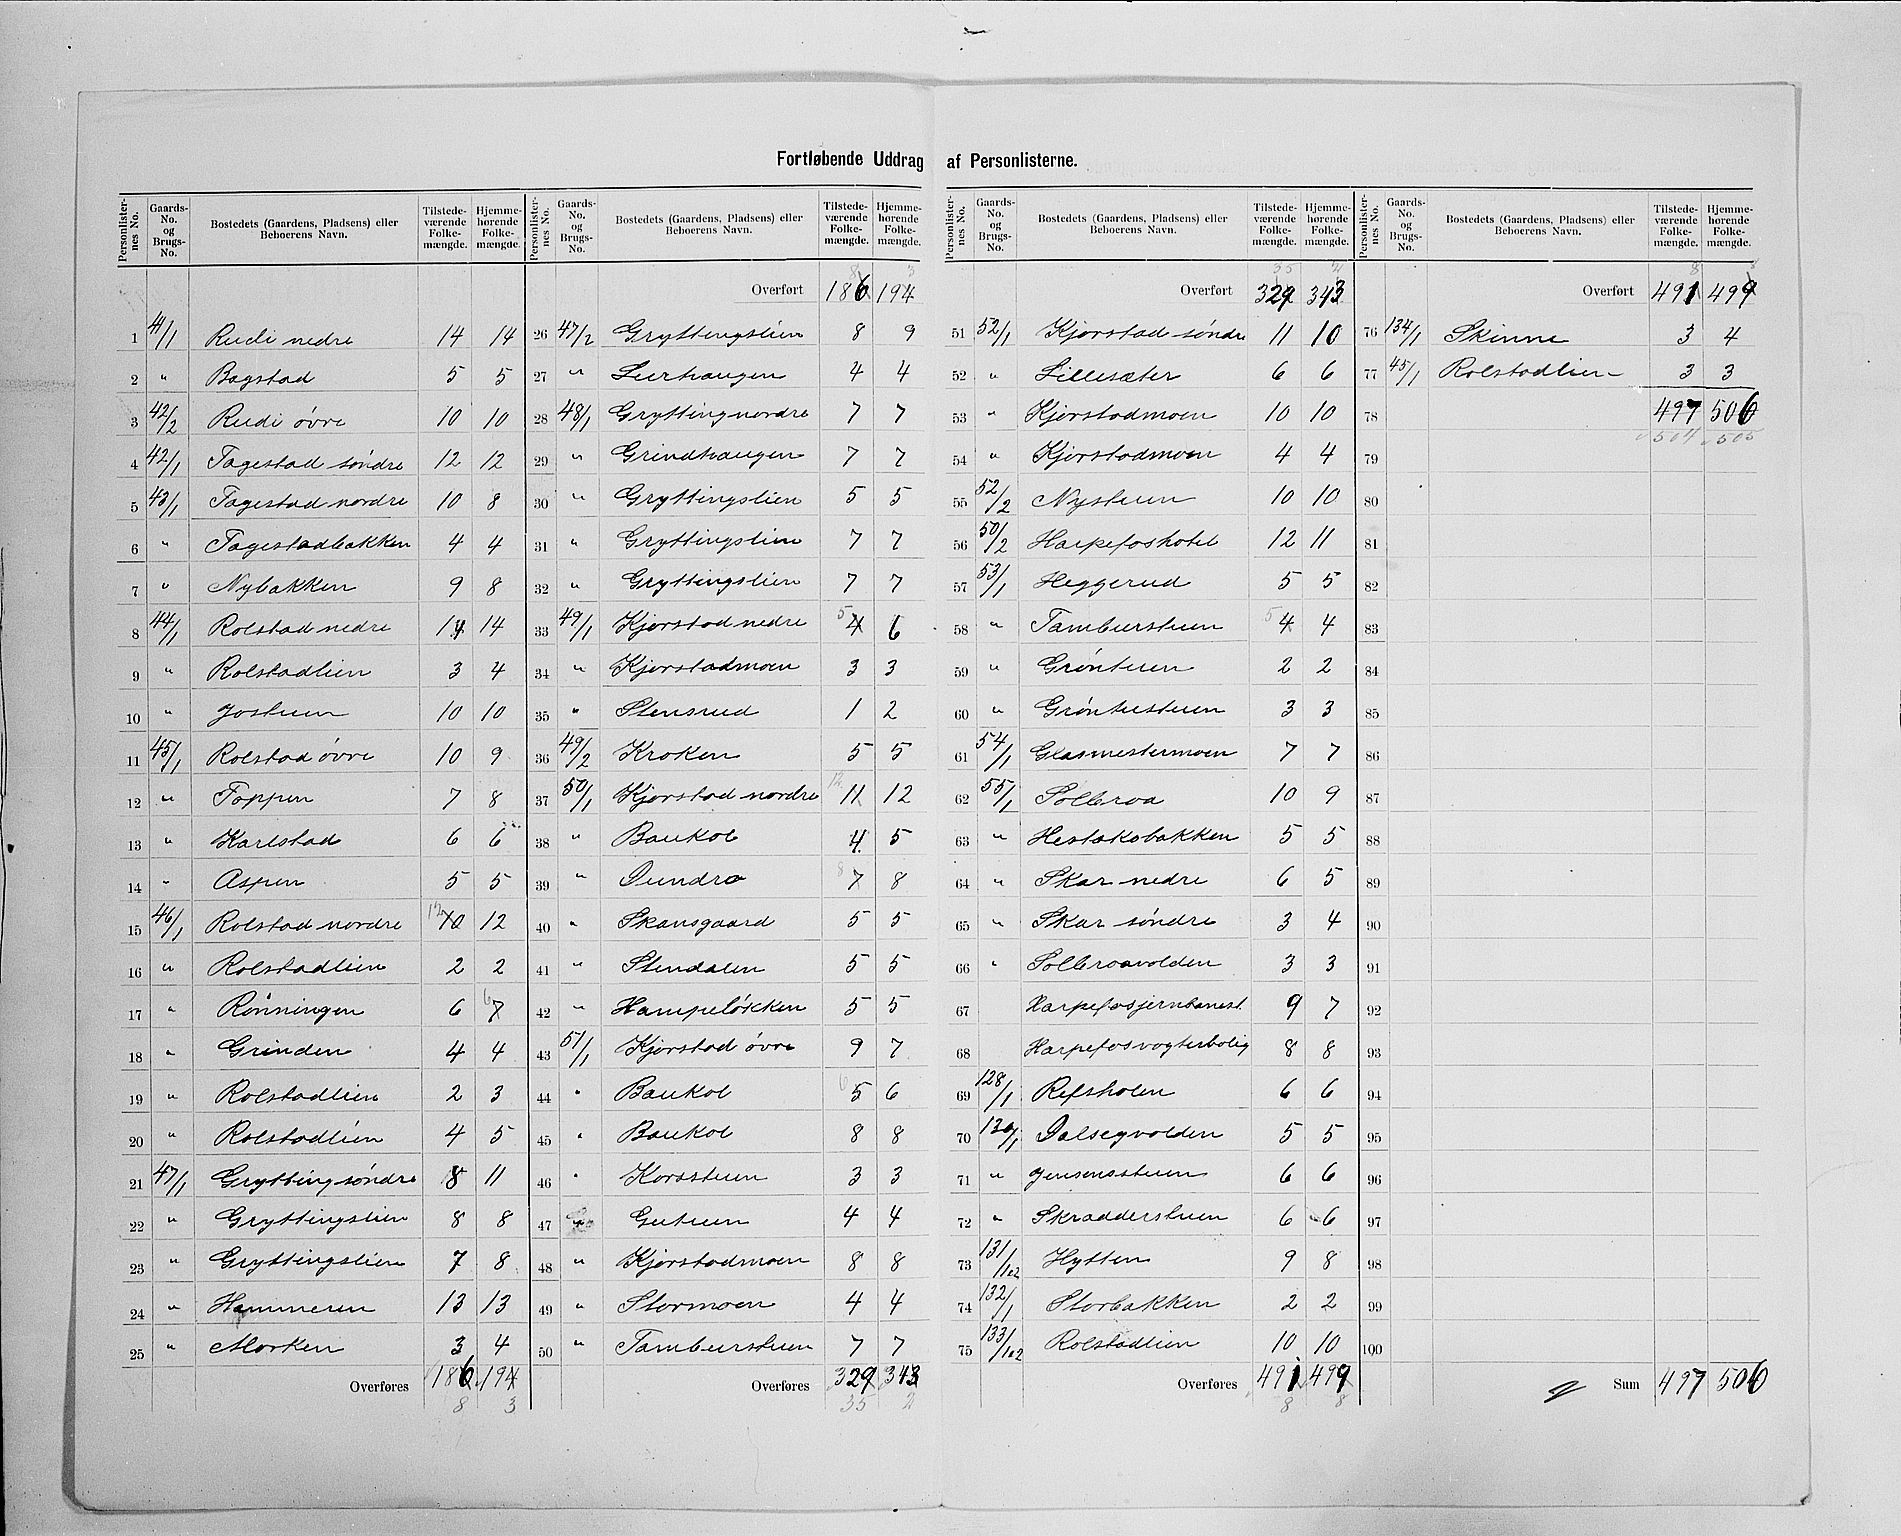 Fortløbende Uddrag af Personlisterne.
Personlisternes No. | Gaards-No. og Brugs-No. | Bostedets (Gaardens, Pladsens) eller Beboerens Navn. | Tilstedeværende Folkemængde. | Hjemmehørende Folkemængde.
1 41/1 Rudi nedre 14 14
2 " Bagstad 5 5
3 42/2 Rudi øvre 10 10
4 42/1 Tagestad søndre 12 12
5 43/1 Tagestad nordre 10 8
6 " Tagestadbakken 4 4
7 " Nybakken 9 8
8 44/1 Rolstad nedre 14 14
9 " Rolstadlien 3 4
10 " Jostuen 10 10
11 45/1 Rolstad øvre 10 9
12 " Toppen 7 8
13 " Karlstad 6 6
14 " Aspen 5 5
15 46/1 Rolstad nordre 12 10 12
16 " Rolstadlien 2 2
17 " Rønningen 6 6 7
18 " Grinden 4 4
19 " Rolstadlien 2 3
20 " Rolstadlien 4 5
21 47/1 Grytting søndre 8 11
22 " Gryttingslien 8 8
23 " Gryttingslien 7 8
24 " Hammeren 13 13
25 " Morken 3 4
Overføres 186 194
8 3
Personlisternes No. | Gaards-No. og Brugs-No. | Bostedets (Gaardens, Pladsens) eller Beboerens Navn. | Tilstedeværende Folkemængde. | Hjemmehørende Folkemængde.
8 3
Overført 186 194
26 47/2 Gryttingslien 8 9
27 " Leirhaugen 4 4
28 48/1 Grytting nordre 7 7
29 " Grindhaugen 7 7
30 " Gryttingslien 5 5
31 " Gryttingslien 7 7
32 " Gryttingslien 7 7
33 49/1 Kjørstad nedre 5 4 6
34 " Kjørstadmoen 3 3
35 " Stensrud 1 2
36 49/2 Kroken 5 5
37 50/1 Kjørstad nordre 12 11 12
38 " Baukol 4 5
39 " Dundra 8 7 8
40 " Skansgaard 5 5
41 " Stendalen 5 5
42 " Hampeløkken 5 5
43 51/1 Kjørstad øvre 9 7
44 " Baukol 6 5 6
45 " Baukol 8 8
46 " Korsstuen 3 3
47 Gutuen 4 4
48 " Kjørstadmoen 8 8
49 " Stormoen 4 4
50 " Tamburstuen 7 7
Overføres 329 343
35 2
Personlisternes No. | Gaards-No. og Brugs-No. | Bostedets (Gaardens, Pladsens) eller Beboerens Navn. | Tilstedeværende Folkemængde. | Hjemmehørende Folkemængde.
35 2
Overført 329 343
51 52/1 Kjørstad søndre 11 10
52 " Lillesæter 6 6
53 " Kjørstadmoen 10 10
54 " Kjørstadmoen 4 4
55 52/2 Nystuen 10 10
56 50/2 Harpefoshotel 12 11
57 53/1 Heggerud 5 5
58 " Tamburstuen 5 4 4
59 " Grøntuen 2 2
60 " Grøntustuen 3 3
61 54/1 Glasmestermoen 7 7
62 55/1 Solbraa 10 9
63 " Hestskobakken 5 5
64 " Skar nedre 6 5
65 " Skar søndre 3 4
66 " Solbraavolden 3 3
67 Harpefosjernbanest. 9 7
68 Harpefosvogterbolig 8 8
69 128/1 Refsholen 6 6
70 130/1 Dalsegvolden 5 5
71 " Jensensstuen 6 6
72 " Skradderstuen 6 6
73 131/1 Hytten 9 8
74 132/1 Storbakken 2 2
75 133/1 Rolstadlien 10 10
Overføres 491 499
8 8
Personlisternes No. | Gaards-No. og Brugs-No. | Bostedets (Gaardens, Pladsens) eller Beboerens Navn. | Tilstedeværende Folkemængde. | Hjemmehørende Folkemængde.
8 8
Overført 491 499
76 134/1 Skinne 3 4
77 45/1 Rolstadlien 3 3
78 497 506
504 505
79
80
81
82
83
84
85
86
87
88
89
90
91
92
93
94
95
96
97
98
99
100
Sum 497 506